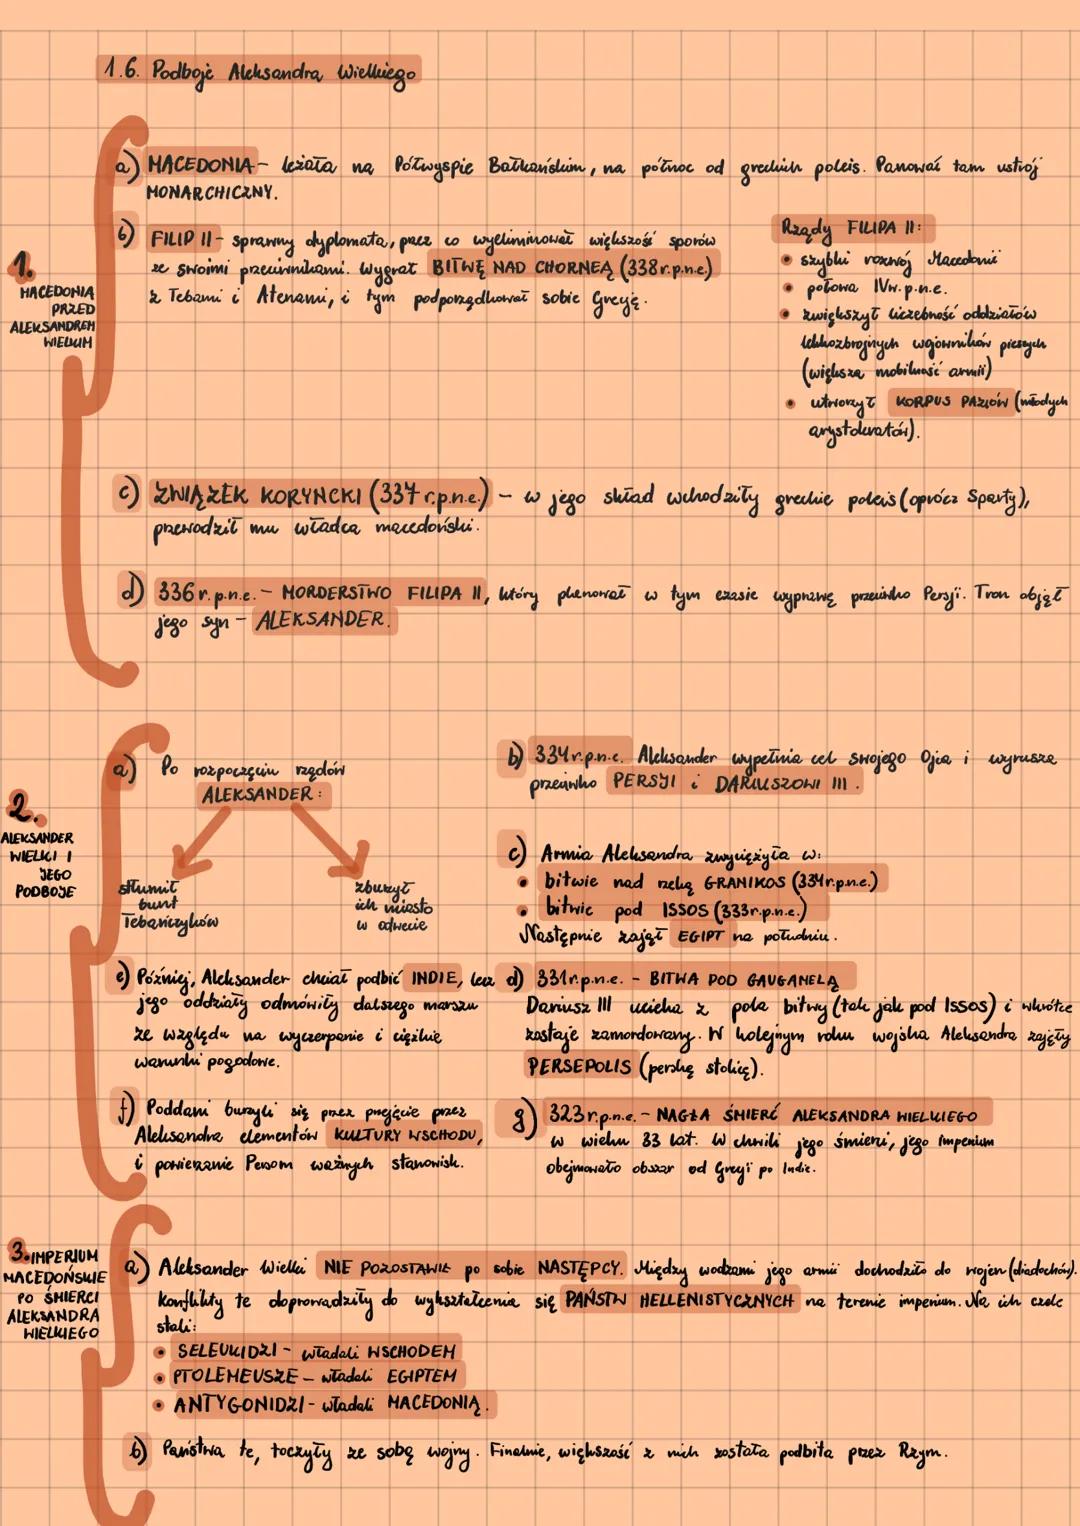 1.6. Podboje Aleksandra Wielkiego
1.
MACEDONIA
PRZED
ALEKSANDREM
WIELKIM
a) MACEDONIA - leżała na Półwyspie Bałkańskim, na północ od greckich poleis. Panował tam ustrój
MONARCHICZNY.
b) FILIP II - sprawny dyplomata, przez co wyeliminował większość sporów
ze swoimi przeciwnikami. Wygrał BITWĘ NAD CHORNEĄ (338 r.p.n.e.)
z Tebami i Atenami, i tym podporządkował sobie Grecję.
Rządy FILIPA II:
• szybki rozwój Macedonii
• połowa IVw.p.n.e.
• zwiększył liczebność oddziałów
lekkozbrojnych wojowników pieszych
(większa mobilność armii)
• utworzył KORPUS PAZIÓW (młodych
arystokratów).
c) ZWIĄZEK KORYNCKI (337 r.p.n.e.) - w jego skład wchodziły greckie poleis (oprócz Sparty),
przewodził mu władca macedoński.
d) 336 r.p.n.e. - MORDERSTWO FILIPA II, który planował w tym czasie wyprawę przeciwko Persji. Tron objął
jego syn - ALEKSANDER.
2.
ALEKSANDER
WIELKI I
JEGO
PODBOJE
a) Po rozpoczęciu rządów
ALEKSANDER:
stłumił
bunt
Tebańczyków
zburzył
ich miasto
w odwecie
b) 334 r.p.n.e. Aleksander wypełnia cel swojego Ojca i wyrusza
przeciwko PERSJI i DARIUSZOWI III.
c) Armia Aleksandra zwyciężyła w:
• bitwie nad rzeką GRANIKOS (334r.p.n.e.)
• bitwie pod ISSOS (333r.p.n.e.)
Następnie zajął EGIPT na południu.
e) Później, Aleksander chciał podbić INDIE, lecz
jego oddziały odmówiły dalszego marszu
ze względu na wyczerpanie i ciężkie
warunki pogodowe.
d) 331r.p.n.e. - BITWA POD GAUGANELĄ
Dariusz III ucieka z pola bitwy (tak jak pod ISSOS) i wkrótce
zostaje zamordowany. W kolejnym roku wojska Aleksandra zajęły
PERSEPOLIS (perską stolicę).
f) Poddani burzyli się przez przejęcie przez
Aleksandra elementów KULTURY WSCHODU,
i powierzanie Persom ważnych stanowisk.
g) 323 r.p.n.e. - NAGŁA ŚMIERĆ ALEKSANDRA WIELKIEGO
w wieku 33 lat. W chwili jego śmierci, jego imperium
obejmowało obszar od Grecji po Indie.
3. IMPERIUM
MACEDOŃSKIE
PO ŚMIERCI
ALEKSANDRA
WIELKIEGO
a) Aleksander Wielki NIE POZOSTAWIŁ po sobie NASTĘPCY. Między wodzami jego armii dochodziło do wojen (diadochów).
Konflikty te doprowadziły do wykształcenia się PAŃSTW HELLENISTYCZNYCH na terenie imperium. Na ich czele
stali:
• SELEUKIDZI - władali WSCHODEM
• PTOLEMEUSZE - władali EGIPTEM
• ANTYGONIDZI - władali MACEDONIĄ.
b) Państwa te, toczyły ze sobą wojny. Finalnie, większość z nich została podbita przez Rzym.